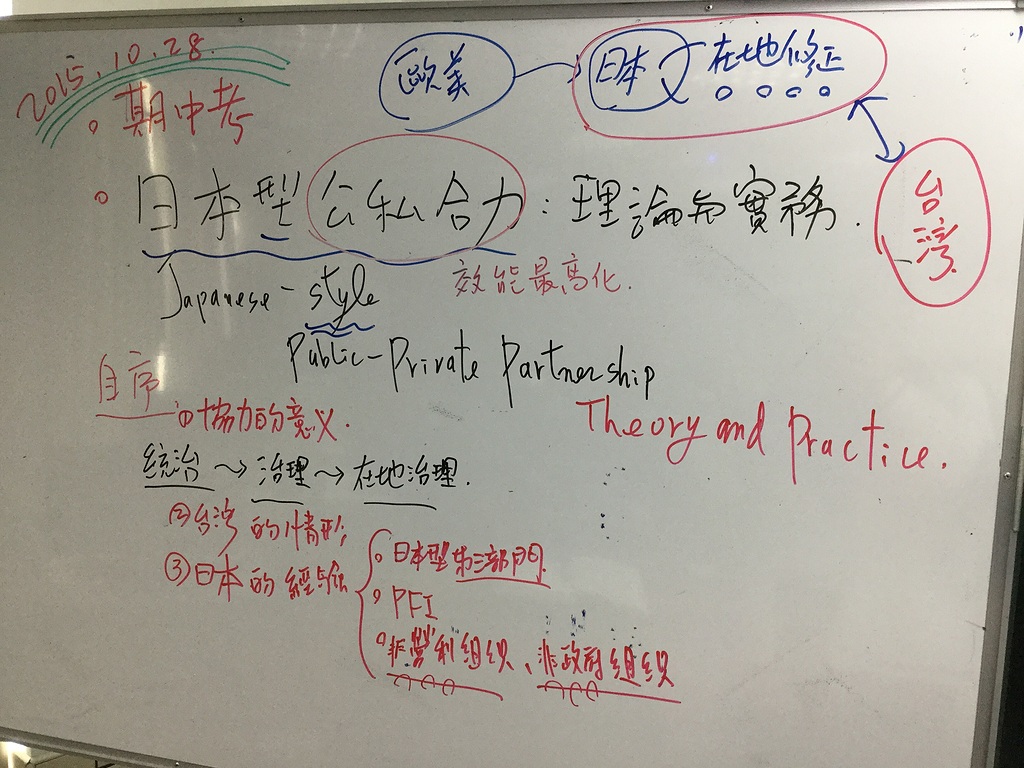 2015.10.28.
期中考
歐美
日本
在地修正
台灣
日本型公私合力：理論與實務.
Japanese-style
效能最高化.
Public-Private Partnership
Theory and Practice.
自序
①協力的意义.
統治→治理→在地治理.
②台湾的情形
③日本的經驗
日本型第三部門
PFI
非營利組织、非政府組织